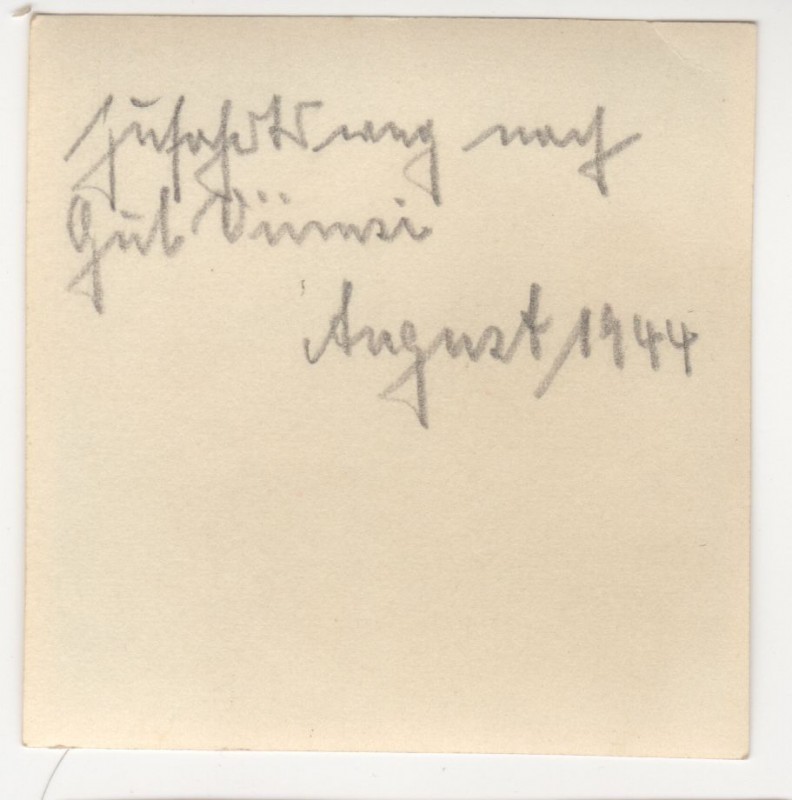 Zufahrtsweg nach
Gut Viimsi
August 1944